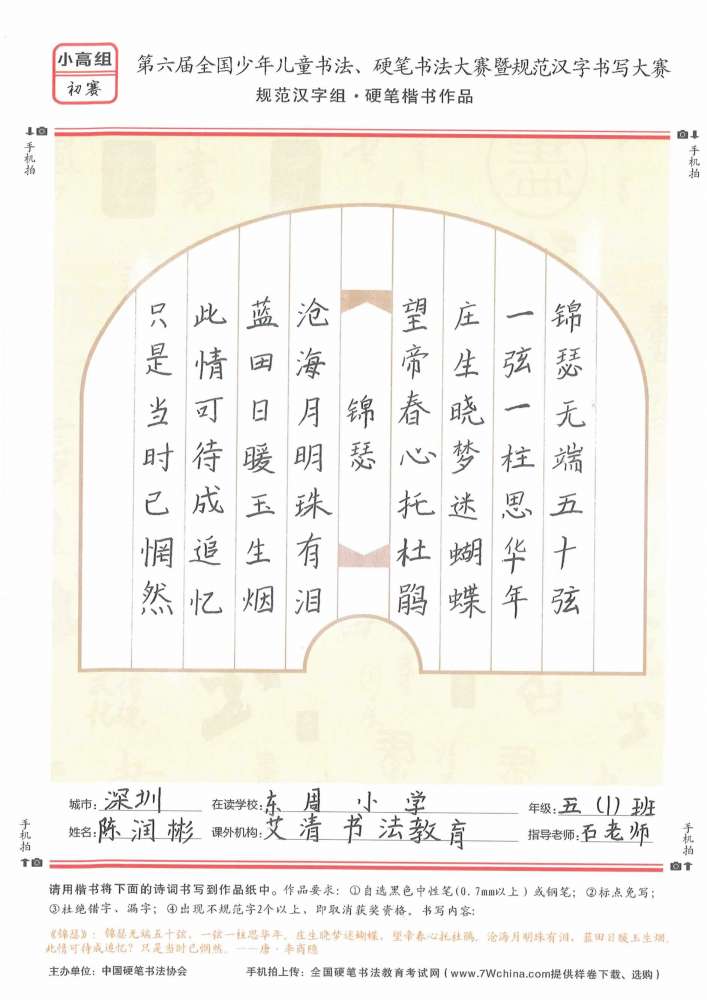 小高组
初赛
第六届全国少年儿童书法、硬笔书法大赛暨规范汉字书写大赛
规范汉字组·硬笔楷书作品
手机拍
手机拍
锦瑟无端五十弦
一弦一柱思华年
庄生晓梦迷蝴蝶
望帝春心托杜鹃
锦瑟
沧海月明珠有泪
蓝田日暖玉生烟
此情可待成追忆
只是当时已惘然
城市:深圳 在读学校:东周小学 年级:五(1)班
姓名:陈润彬 课外机构:艾清书法教育 指导老师:石老师
手机拍
手机拍
请用楷书将下面的诗词书写到作品纸中。作品要求:①自选黑色中性笔(0.7mm以上)或钢笔;②标点免写;
③杜绝错字、漏字;④出现不规范字2个以上,即取消获奖资格。书写内容:
《锦瑟》:锦瑟无端五十弦,一弦一柱思华年。庄生晓梦迷蝴蝶,望帝春心托杜鹃。沧海月明珠有泪,蓝田日暖玉生烟。
此情可待成追忆?只是当时已惘然。——唐·李商隐
主办单位:中国硬笔书法协会 手机拍上传:全国硬笔书法教育考试网(www.7Wchina.com提供样卷下载、选购)